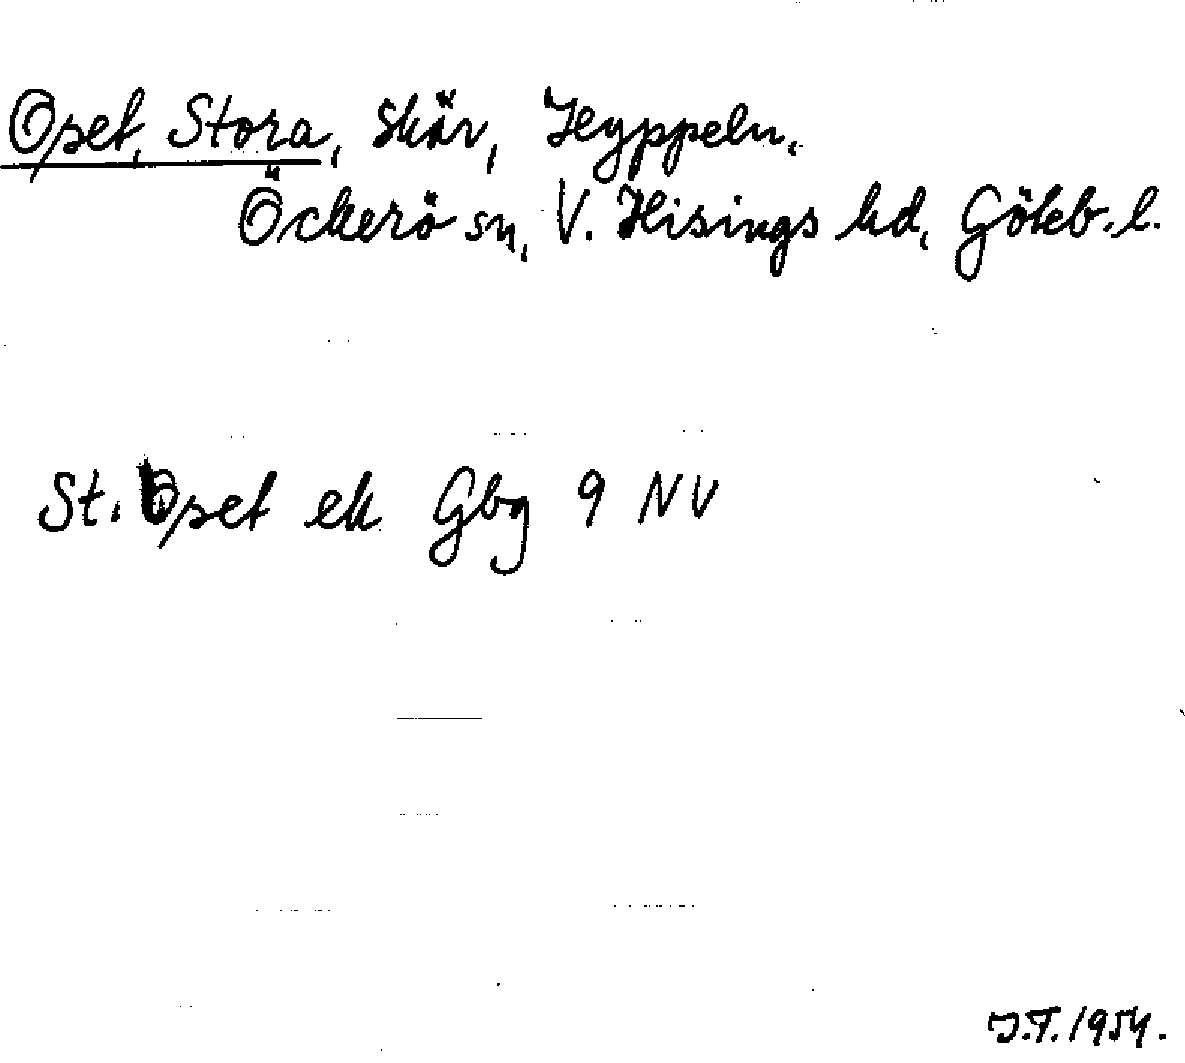 Opet, Stora, skär, Heyppeln,
Öckerö sn, V. Hisings hd, Göteb. l.
St. Opet ek Gbg 9 NV
J.T. 1954.